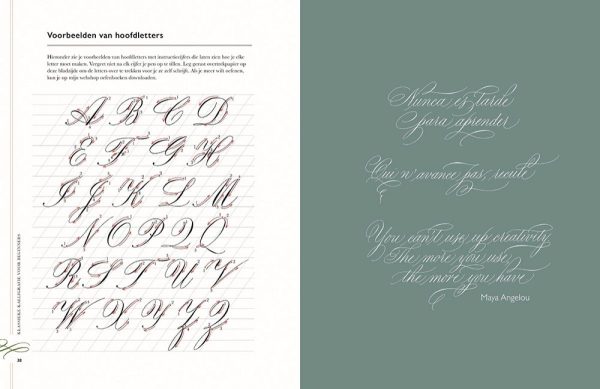 Voorbeelden van hoofdletters
Hieronder zie je voorbeelden van hoofdletters met instructiecijfers die laten zien hoe je elke
letter moet maken. Vergeet niet na elk cijfer je pen op te tillen. Leg gerust overtrekpapier op
deze bladzijde om de letters over te trekken voor je ze zelf schrijft. Als je meer wilt oefenen,
kun je op mijn webshop oefenboeken downloaden.
A B C D
E F G H
I J K L M
N O P Q Q
R S T U V
W X Y Z Z
KLASSIEKE KALLIGRAFIE VOOR BEGINNERS
38
Nunca es tarde
para aprender
Qui n'avance pas, recule
You can't use up creativity
The more you use,
the more you have
Maya Angelou